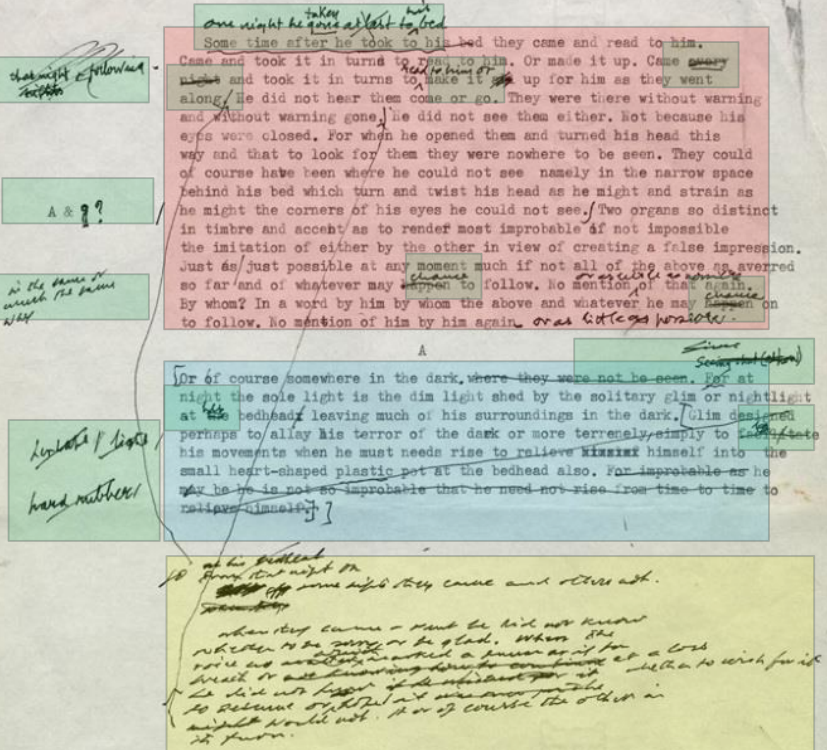 one night he taken at last to his bed
Some time after he took to his bed they came and read to him.
Came and took it in turns to read to him. Or made it up. Came every
that night & following
night and took it in turns to make it up for him as they went
read to him or
along. He did not hear them come or go. They were there without warning
and without warning gone. He did not see them either. Not because his
eyes were closed. For when he opened them and turned his head this
way and that to look for them they were nowhere to be seen. They could
of course have been where he could not see namely in the narrow space
behind his bed which turn and twist his head as he might and strain as
A & ??
he might the corners of his eyes he could not see. Two organs so distinct
in timbre and accent as to render most improbable if not impossible
the imitation of either by the other in view of creating a false impression.
Just as just possible at any moment much if not all of the above as averred
in the same or
much the same
way
chance
or as little as possible
so far and of whatever may happen to follow. No mention of that again.
chance
By whom? In a word by him by whom the above and whatever he may happen on
to follow. No mention of him by him again or as little as possible.
A
Since
Seeing that
Or of course somewhere in the dark, where they were not be seen. For at
night the sole light is the dim light shed by the solitary glim or nightlight
his
at the bedhead leaving much of his surroundings in the dark. Glim designed
perhaps to allay his terror of the dark or more terrenely simply to facilitate
light
his movements when he must needs rise to relieve himself into the
small heart-shaped plastic pot at the bedhead also. For improbable as he
hard rubber
may be he is not so improbable that he need not rise from time to time to
relieve himself.
at his bedhead
From that night on
some nights they came and others not.
when they came he did not know
whether to be sorry or be glad. When the
voice as it for
breath or at a loss
he did not whether to wish for it
to resume or
would not. Nor of course the other in
its turn.